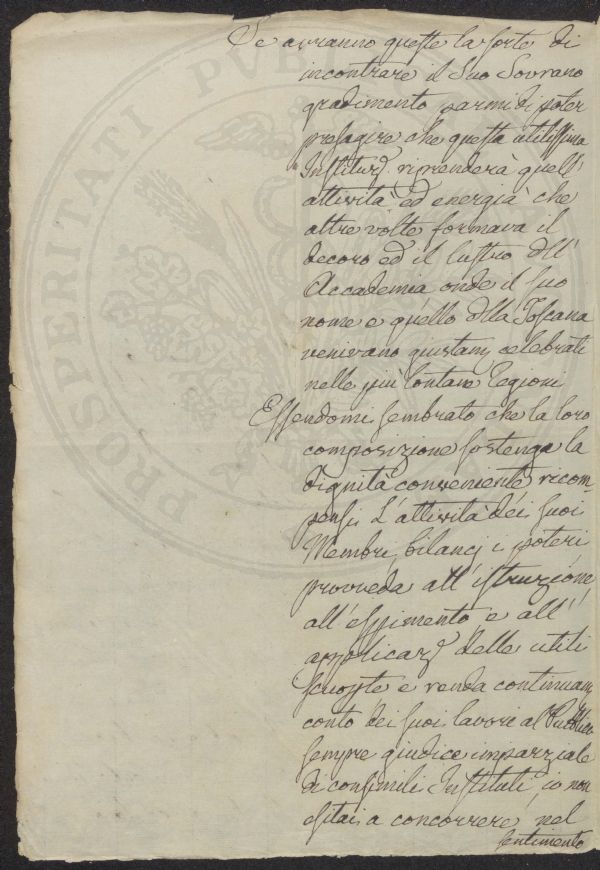 Se avranno queste la sorte di
incontrare il Suo Sovrano
gradimento, parmi di poter
presagire che questa utilissima
Instituz. riprenderà quell'
attività ed energia che
altre volte formava il
decoro ed il lustro dll'
Accademia onde il suo
nome e quello dlla Toscana
venivano giustam celebrati
nelle più lontane Regioni
Essendomi sembrato che la loro
composizione sostenga la
dignità conveniente ricom-
pensi l'attività dei suoi
Membri, bilanci i poteri
provveda all'istruzione,
all'esprimento, e all'
applicaz delle utili
scuoprte e renda continuam
conto dei suoi lavori al Pubblico
sempre giudice imparziale
di consimili Instituti, io non
esitai a concorrere nel
sentimento
PROSPERITATI PUBL